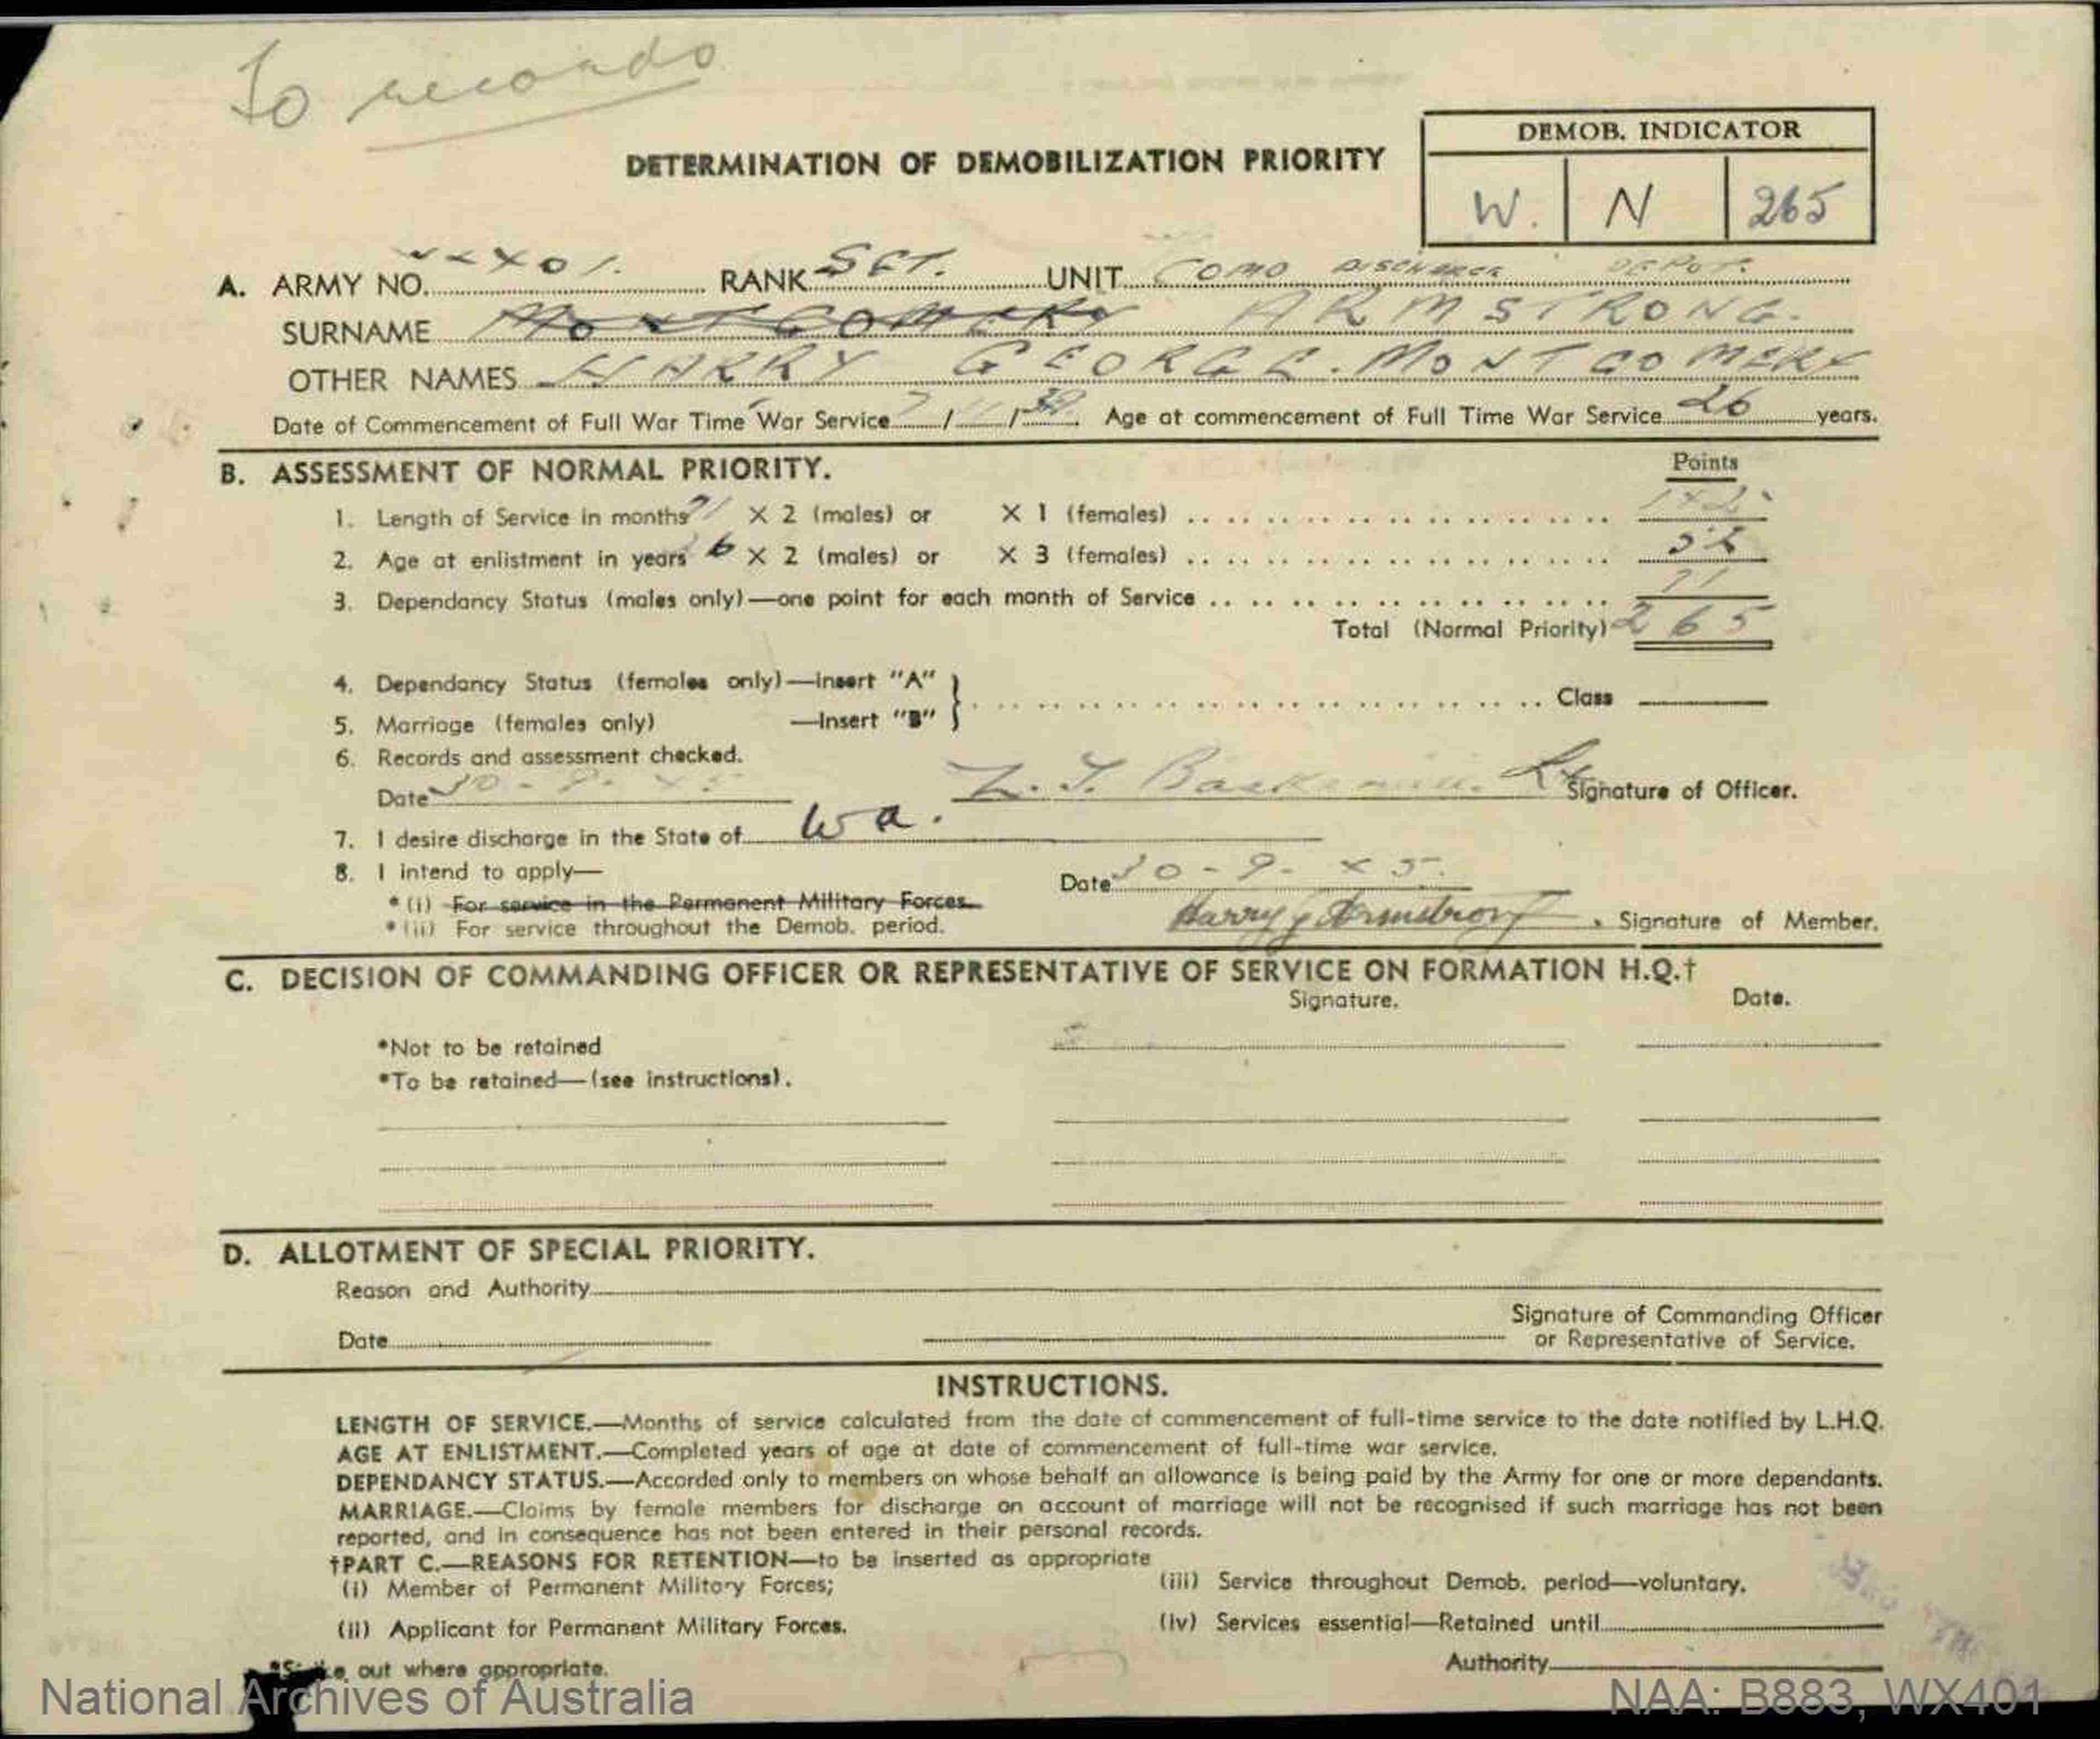 To records
DEMOB. INDICATOR
DETERMINATION OF DEMOBILIZATION PRIORITY
W. N 265
A. ARMY NO. WX401. RANK SGT. UNIT COMO DISCHARGE DEPOT.
SURNAME MONTGOMERY ARMSTRONG.
OTHER NAMES HARRY GEORGE. MONTGOMERY
Date of Commencement of Full War Time War Service 7/11/39 Age at commencement of Full Time War Service 26 years.
B. ASSESSMENT OF NORMAL PRIORITY. Points
1. Length of Service in months 71 X 2 (males) or X 1 (females) 142
2. Age at enlistment in years 26 X 2 (males) or X 3 (females) 52
3. Dependancy Status (males only)—one point for each month of Service 71
Total (Normal Priority) 265
4. Dependancy Status (females only)—Insert "A"
Class
5. Marriage (females only) —Insert "B"
6. Records and assessment checked.
Date 30-9-45 Lt Signature of Officer.
7. I desire discharge in the State of Wa.
8. I intend to apply— Date 30-9-45.
*(i) For service in the Permanent Military Forces.
*(ii) For service throughout the Demob. period. Harry G Armstrong. Signature of Member.
C. DECISION OF COMMANDING OFFICER OR REPRESENTATIVE OF SERVICE ON FORMATION H.Q.†
Signature. Date.
*Not to be retained
*To be retained—(see instructions).
D. ALLOTMENT OF SPECIAL PRIORITY.
Reason and Authority
Signature of Commanding Officer
Date or Representative of Service.
INSTRUCTIONS.
LENGTH OF SERVICE.—Months of service calculated from the date of commencement of full-time service to the date notified by L.H.Q.
AGE AT ENLISTMENT.—Completed years of age at date of commencement of full-time war service.
DEPENDANCY STATUS.—Accorded only to members on whose behalf an allowance is being paid by the Army for one or more dependants.
MARRIAGE.—Claims by female members for discharge on account of marriage will not be recognised if such marriage has not been
reported, and in consequence has not been entered in their personal records.
†PART C.—REASONS FOR RETENTION—to be inserted as appropriate
(i) Member of Permanent Military Forces; (iii) Service throughout Demob. period—voluntary.
(ii) Applicant for Permanent Military Forces. (iv) Services essential—Retained until
*Strike out where appropriate. Authority
National Archives of Australia NAA: B883, WX401